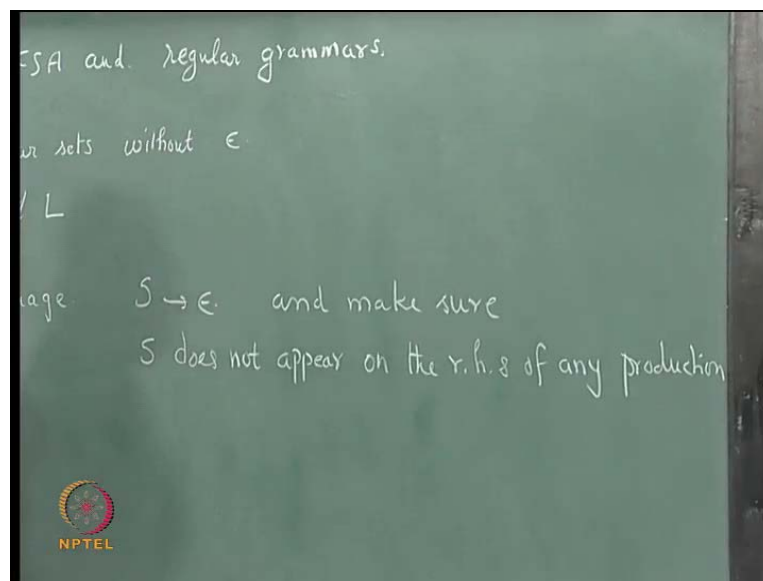 FSA and regular grammars.
sets without ϵ.
L
S → ϵ. and make sure
S does not appear on the r.h.s of any production
NPTEL